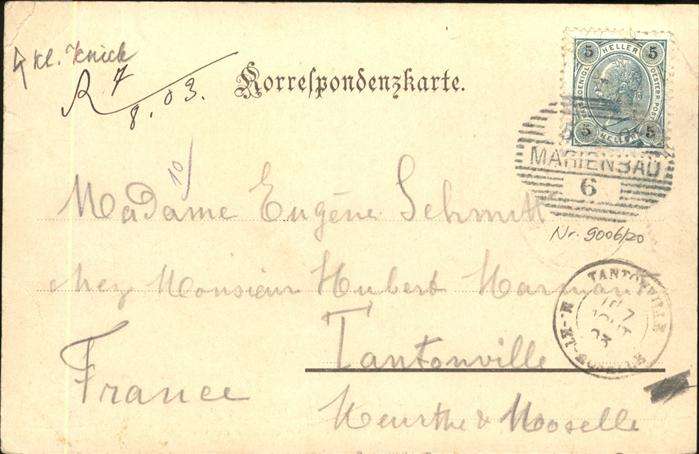 kl. Knick
R 7/8.03.
Korrespondenzkarte.
5 HELLER 5
5 HELLER 5
MARIENBAD
6
10
Madame Eugène Schmitt
Nr. 9006/20
chez Monsieur Hubert Harmand
TANTONVILLE
Tantonville
France
Meurthe & Moselle